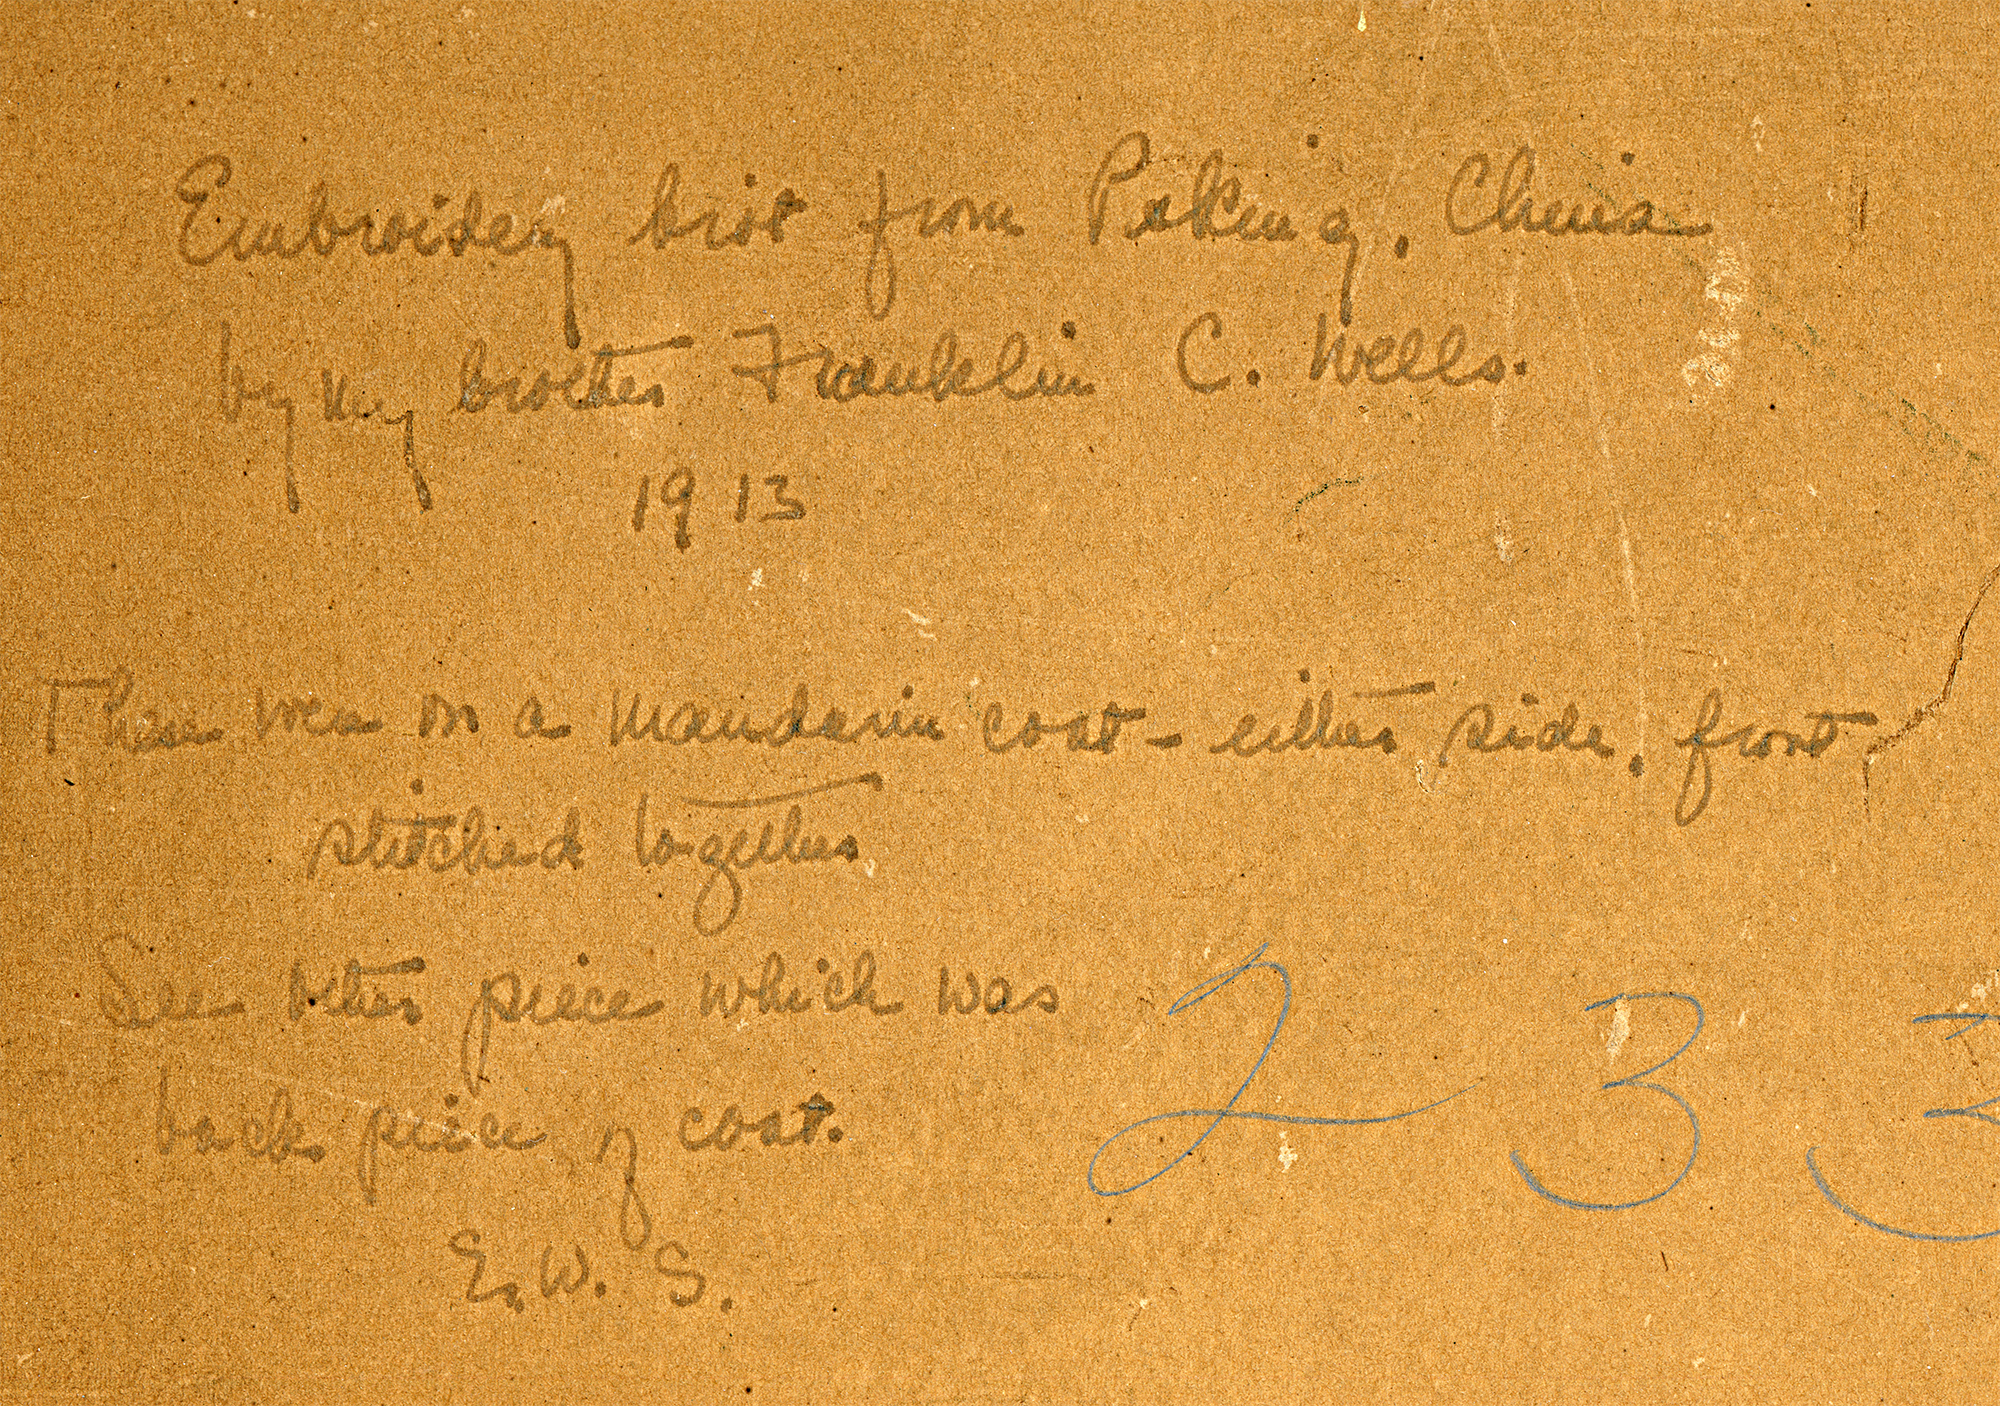 Embroidery brot from Peking, China
by my brother Franklin C. Wells.
1913
These were on a Mandarin coat - either side, front
stitched together
See other piece which was
back piece of coat.
E. W. S.
2 3 3